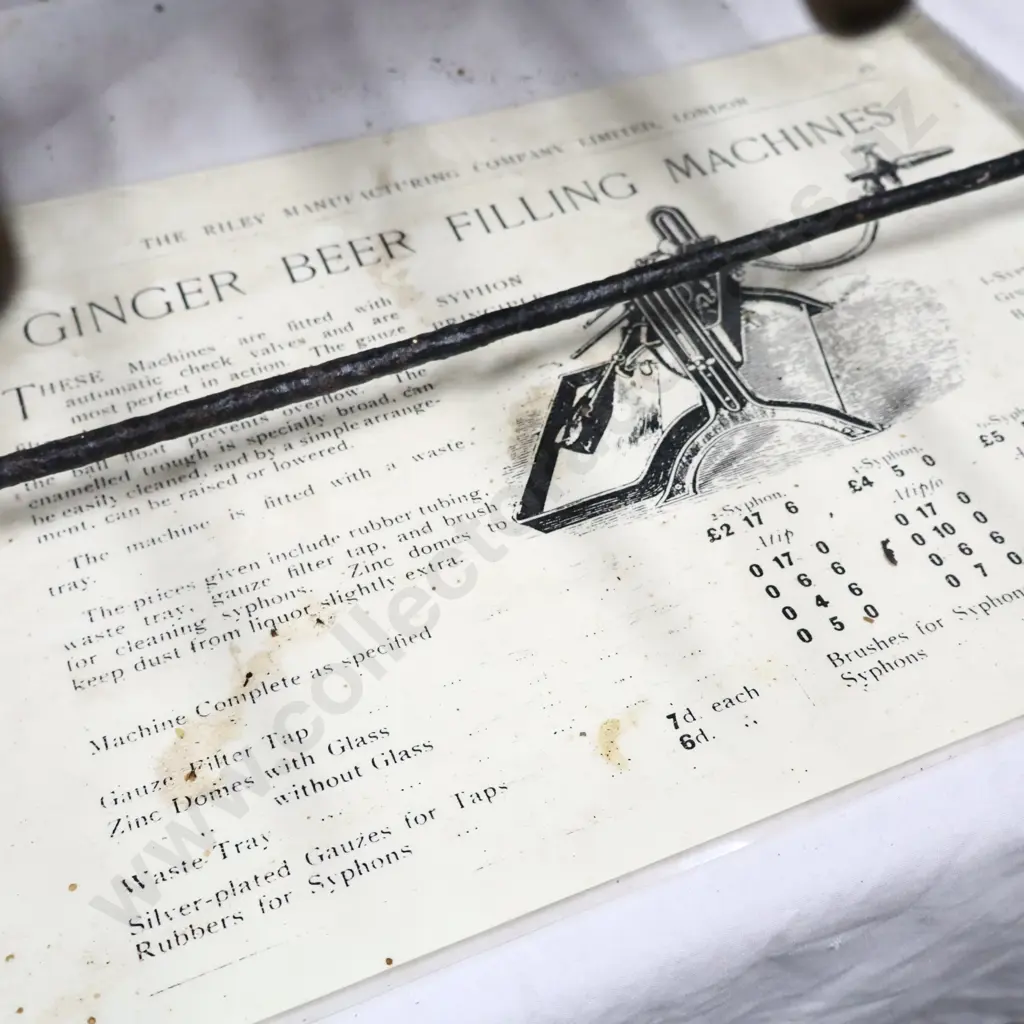 THE RILEY MANUFACTURING COMPANY LIMITED, LONDON
GINGER BEER FILLING MACHINES
THESE Machines are fitted with SYPHON
automatic check valves and are PRINCIPLE
most perfect in action. The gauze
the ball float prevents overflow. The
enamelled trough is specially broad, can
be easily cleaned, and by a simple arrange-
ment, can be raised or lowered.
The machine is fitted with a waste
tray.
The prices given include rubber tubing,
waste tray, gauze filter tap, and brush
for cleaning syphons. Zinc domes to
keep dust from liquor slightly extra.
-Syphon. 4-Syphon.
Machine Complete as specified £2 17 6 £4 5 0 £5
Gauze Filter Tap 0 17 0 0 17 0
Zinc Domes with Glass 0 6 6 0 10 0
without Glass 0 4 6 0 6 6
Waste Tray 0 5 0 0 7 0
Silver-plated Gauzes for Taps 7d. each Brushes for Syphon
Rubbers for Syphons 6d. ,, Syphons
www.collecto s.nz